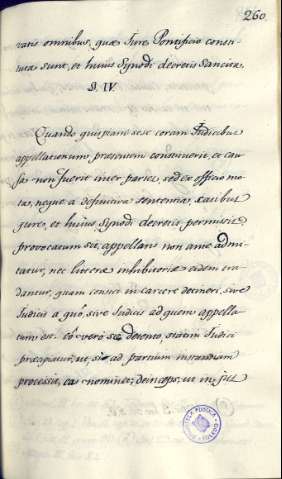 260
vatis omnibus, quæ Jure Pontificio consti
tuta sunt, et huius Synodi decretis sancita.
§. IV.
Quando quispiam sese coram Judicibus
appellationum presentem constituerit, et cau
sa non fuerit inter partes, sed ex officio mo
ta, neque a definitiva sententia, casibus
jure, et huius Synodi decretis permissis
provocatum sit, appellans non ante admi
tatur, nec literæ inhibitoriæ eidem tra
dantur, quam constet in carcere detineri, sive
Judicis a quo, sive Judicis ad quem appella
tum est. Eò verò sic detento, statim Judici
præcipiatur, ut, si ad partium instantiam
processit, eas nominet; deinceps, ut in jus
BIBLIOTECA PUBLICA
TOLEDO